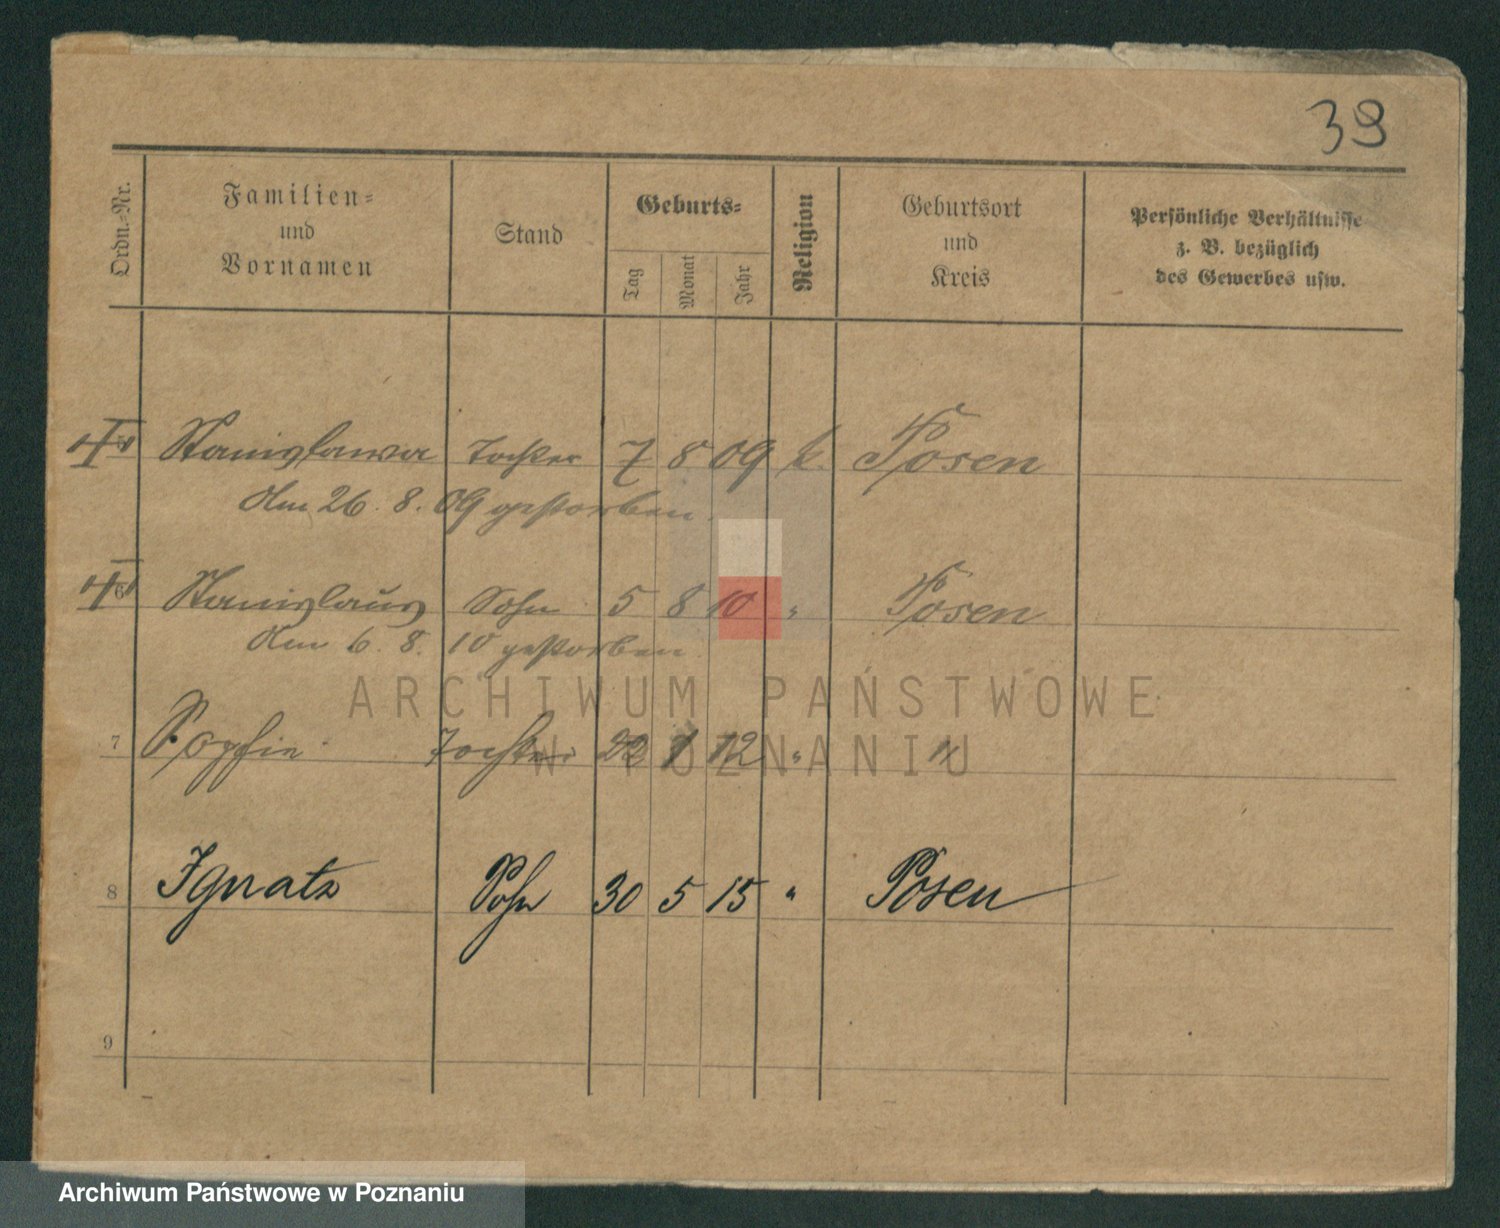 39
Ordn.-Nr.
Familien-
und
Vornamen
Stand
Geburts-
Tag
Monat
Jahr
Religion
Geburtsort
und
Kreis
Persönliche Verhältnisse
z. B. bezüglich
des Gewerbes usw.
Stanislawa Tochter 7 8 09 k. Posen
Am 26. 8. 09 gestorben.
6 Stanislaus Sohn 5 8 10 " Posen
Am 6. 8. 10 gestorben.
ARCHIWUM PAŃSTWOWE
7 Sophie Tochter 12 " "
W POZNANIU
8 Ignatz Sohn 30 5 15 " Posen
9
Archiwum Państwowe w Poznaniu